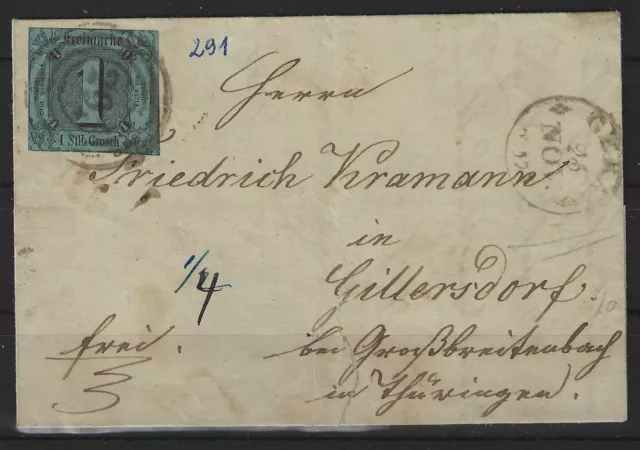 Freimarke
1
1 Silb. Grosch.
291
Herrn
Friedrich Kramann
in
Gillersdorf.
bei Großbreitenbach
in Thüringen.
frei.
1/4
GERA
26
NOV